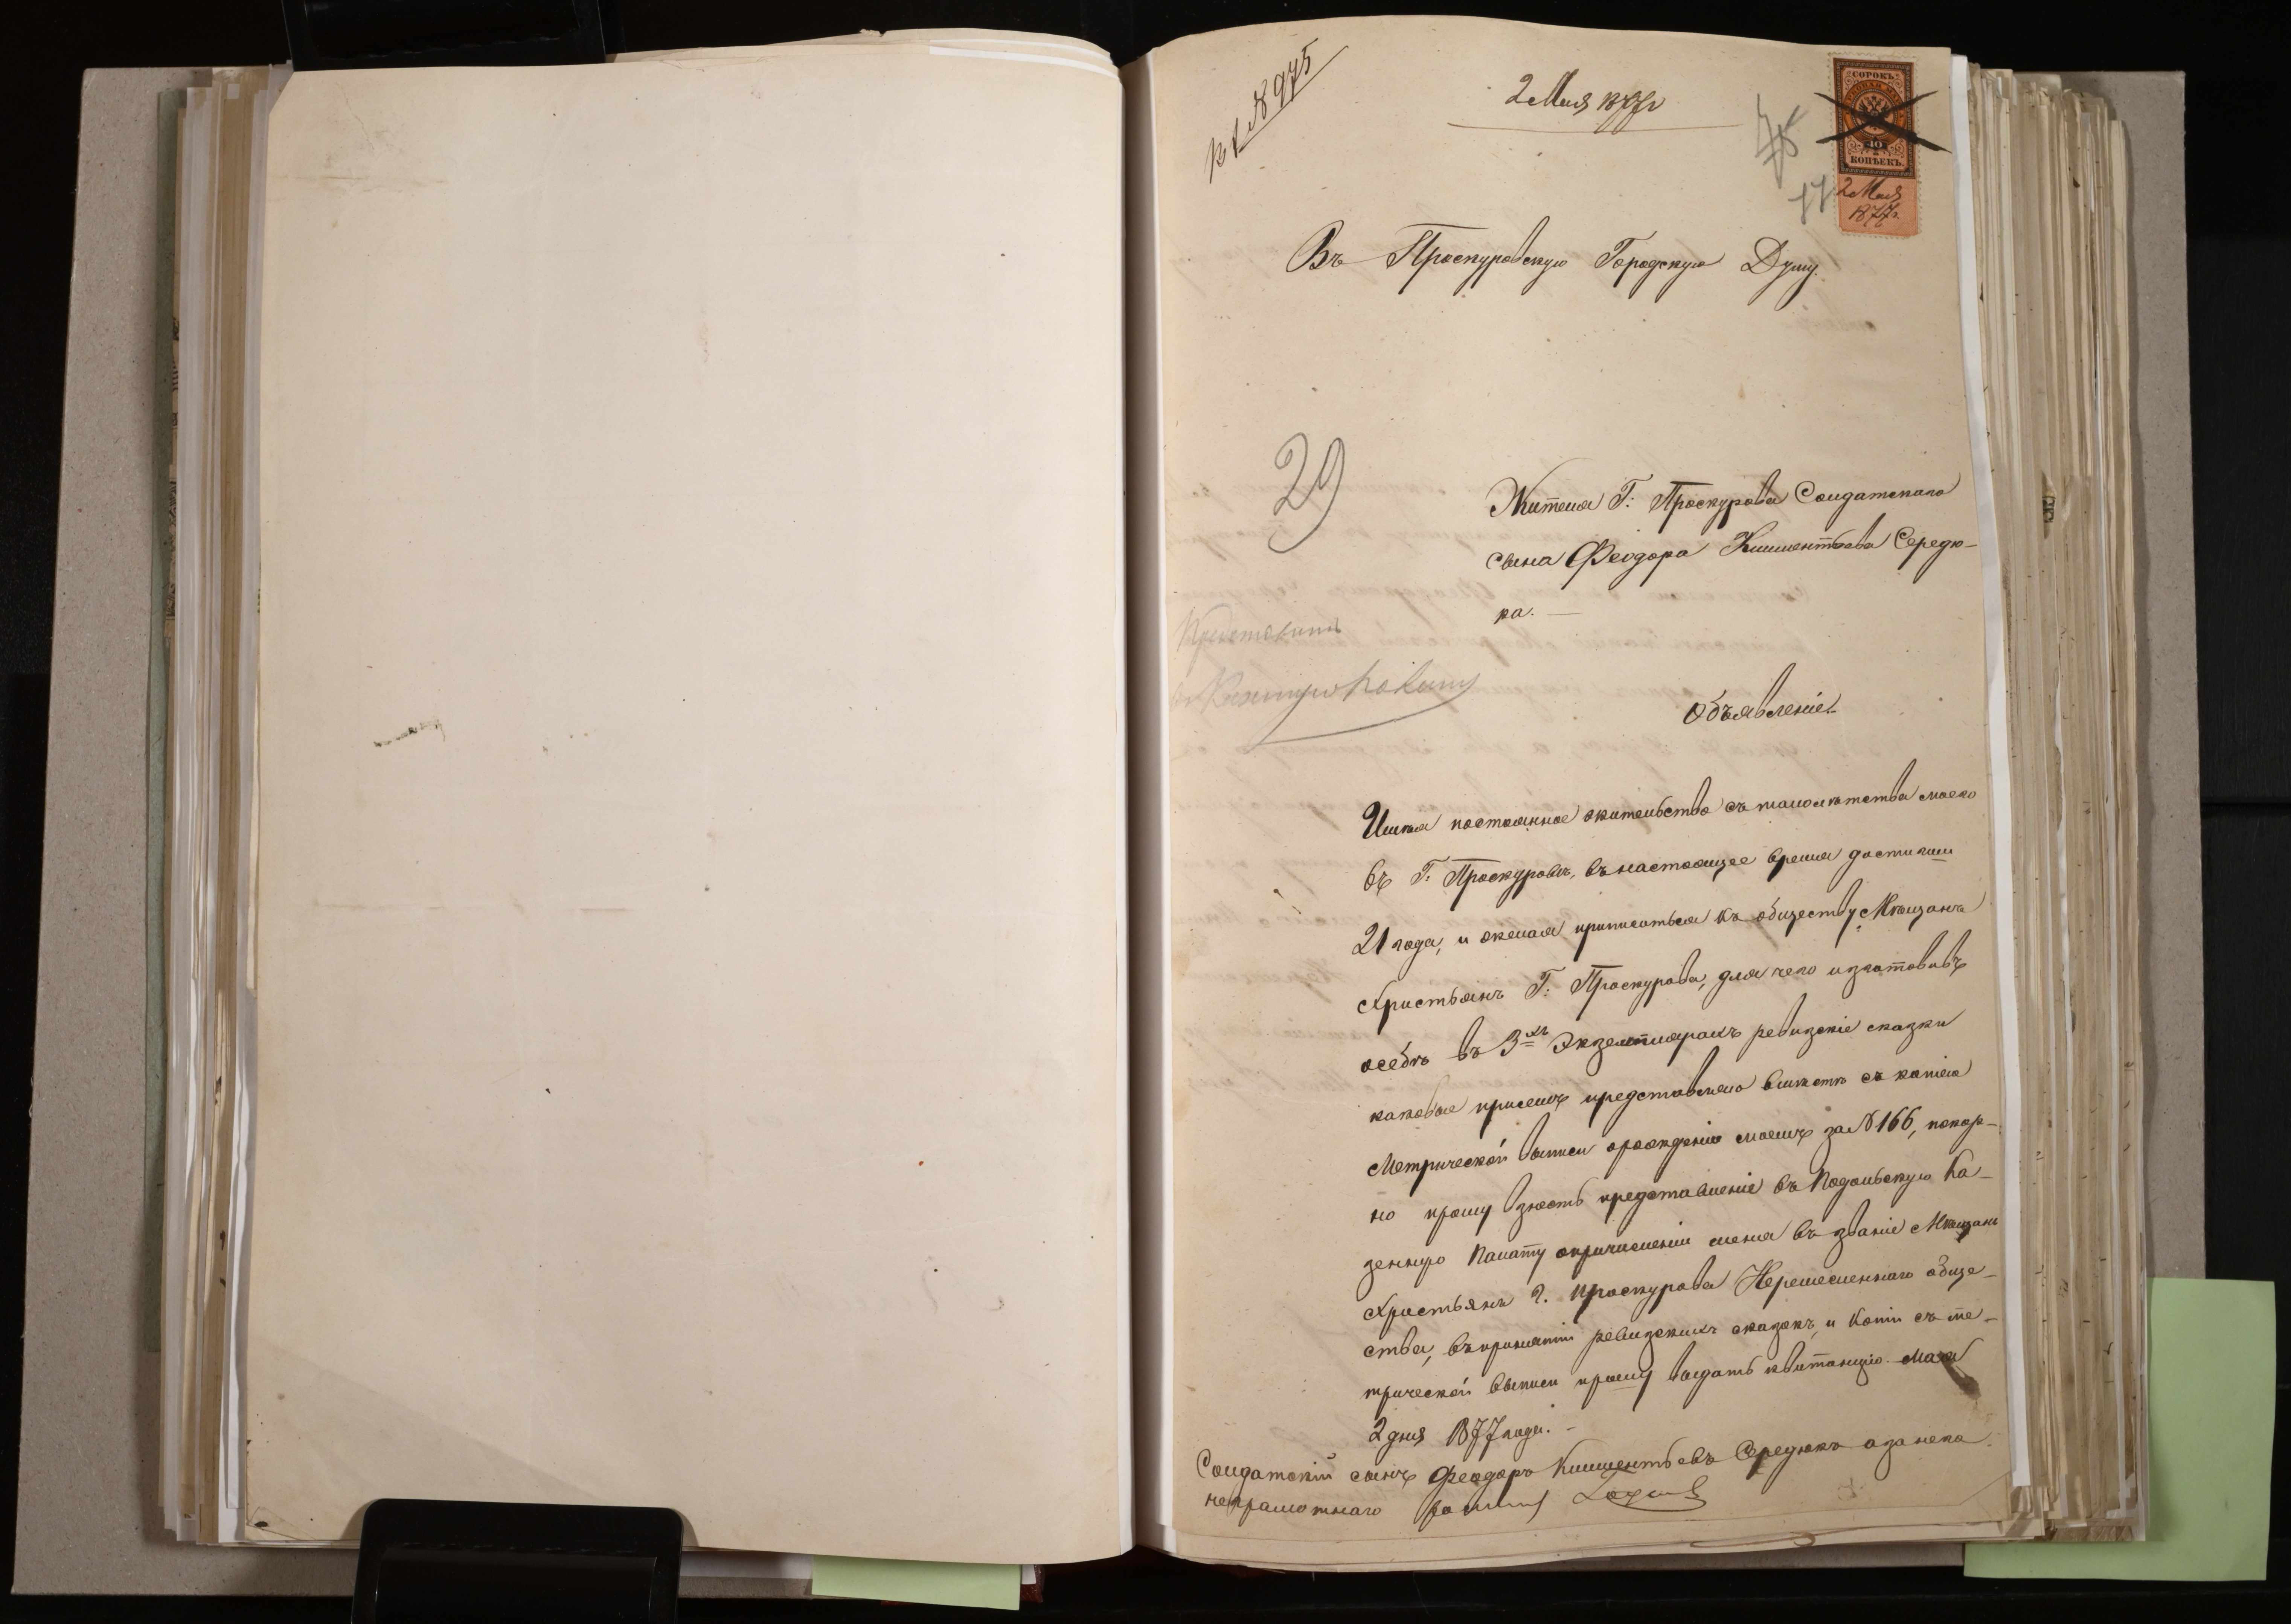 № 975
2 Мая 1877г
СОРОКЪ
40
КОПѢЕКЪ.
2 Мая
1877г.
77
Въ Проскуровскую Городскую Думу.
29
Жителя Г: Проскурова Солдатскаго
сына Феодора Климентьева Середю-
ка. —
Представить
Объявленіе.
Имѣя постоянное жительство съ малолѣтства моего
въ Г: Проскуровѣ, въ настоящее время достигши
21 года, и желая приписаться къ обществу Мѣщанъ
Христьянъ Г: Проскурова, для чего изготовивъ
о себѣ въ 3хъ Экземплярахъ ревизскіе сказки
каковые присемъ представляю вмѣстѣ съ копіею
Метрической выписи орожденіи моемъ за № 166, покор-
но прошу взнесть представленіе въ Подольскую Ка-
зенную Палату опричисленіи меня въ званіе Мѣщанъ
Христьянъ г. Проскурова Неремесленнаго обще-
ства, въ принятіи ревизскихъ сказокъ, и копіи съ ме-
трической выписи прошу выдать квитанцію. Мая
2 дня 1877 года. -
Солдатскій сынъ Феодоръ Климентьевъ Середюкъ а за него
неграмотнаго